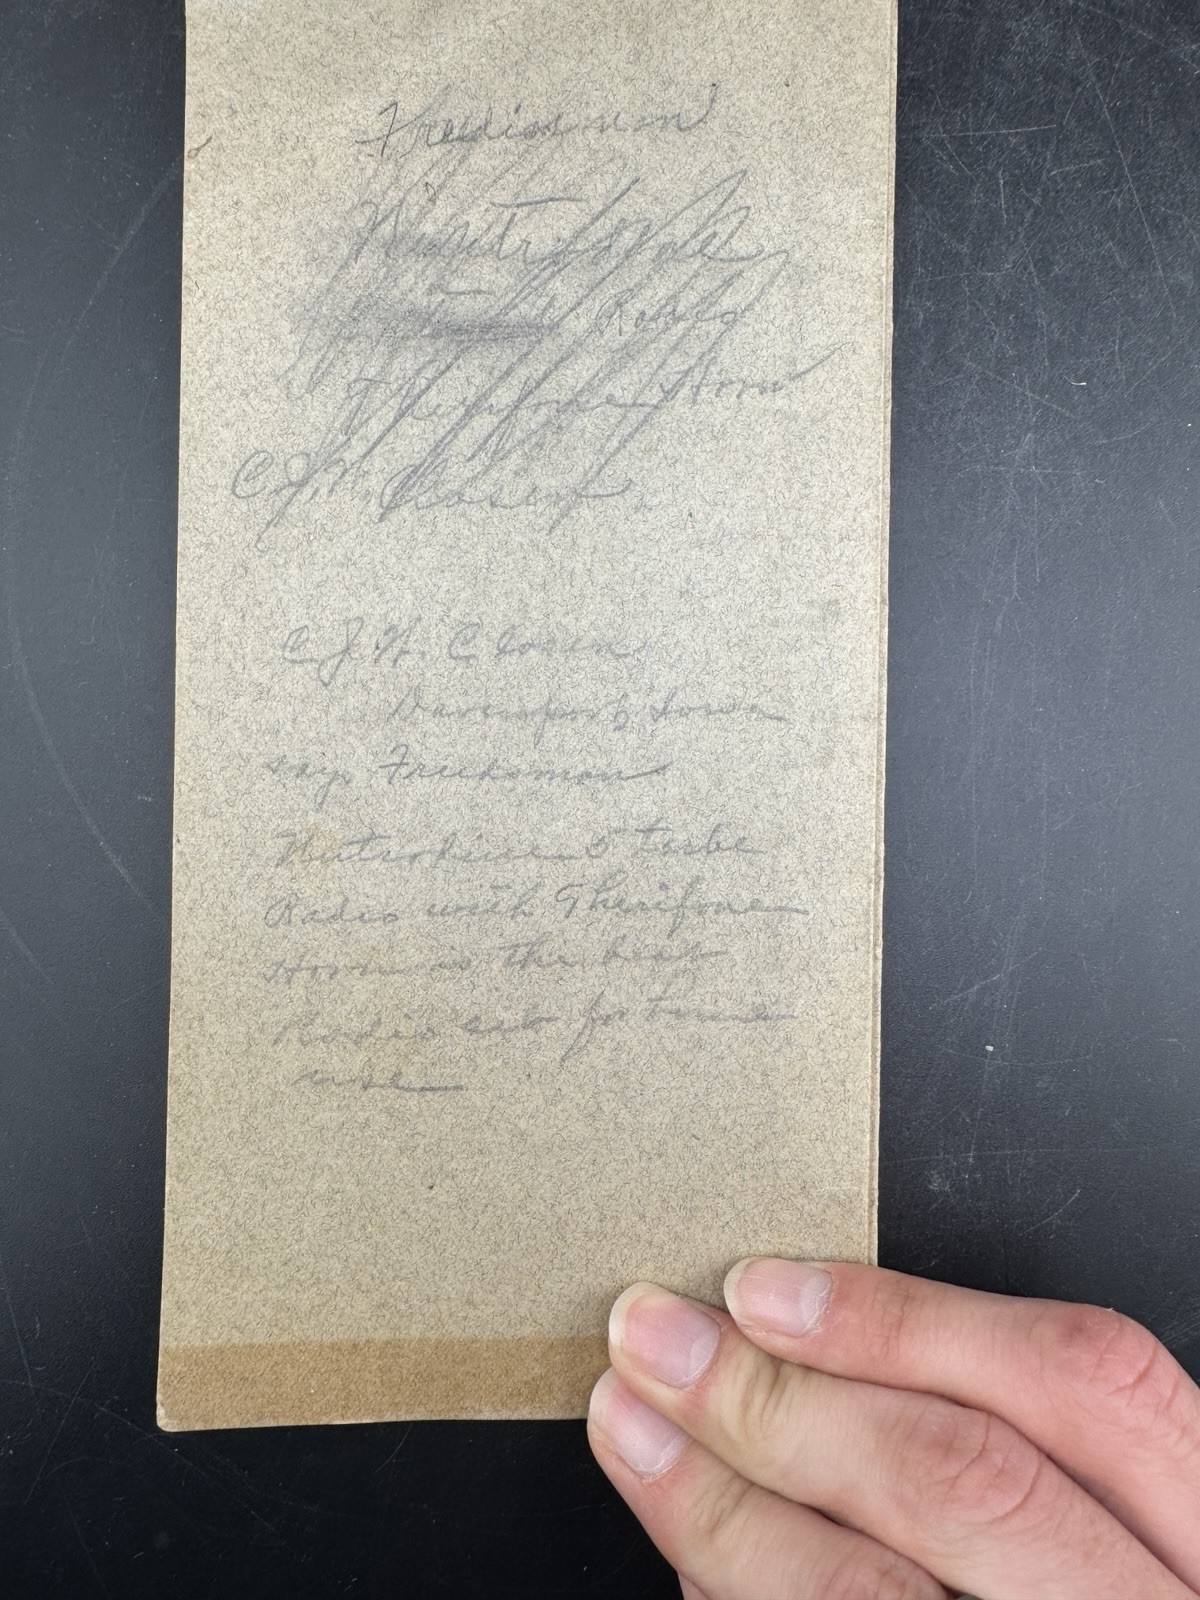 Freedisman
Radio
Therifone Horn
C.J.H. Closen
C. J. H. Closen
Davenport, Iowa
say Freedsman
Nutrodine 5 tube
Radio with Therifone
Horn is the best
Radio set for
use